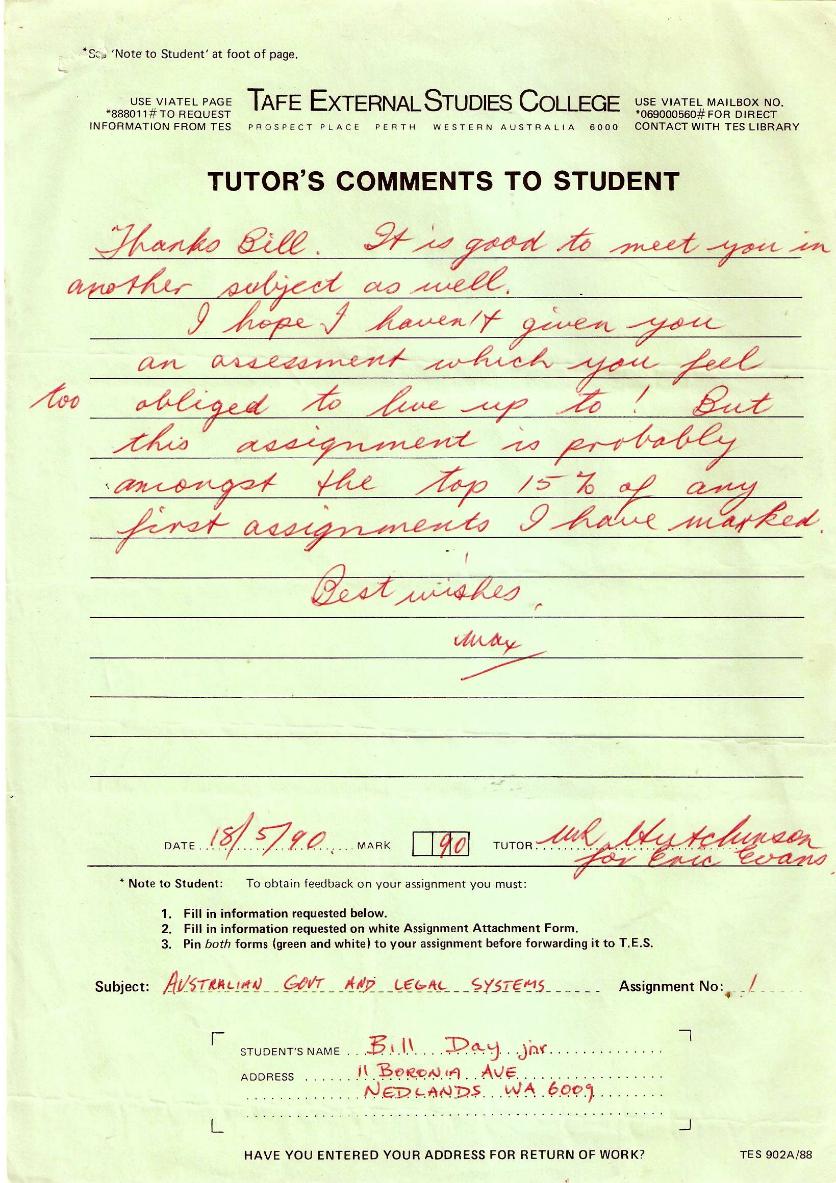 *See 'Note to Student' at foot of page.
USE VIATEL PAGE
*888011# TO REQUEST
INFORMATION FROM TES
TAFE EXTERNAL STUDIES COLLEGE
PROSPECT PLACE PERTH WESTERN AUSTRALIA 6000
USE VIATEL MAILBOX NO.
*069000560# FOR DIRECT
CONTACT WITH TES LIBRARY
TUTOR'S COMMENTS TO STUDENT
Thanks Bill. It is good to meet you in
another subject as well.
I hope I haven't given you
an assessment which you feel
too obliged to live up to! But
this assignment is probably
amongst the top 15% of any
first assignments I have marked.
Best wishes,
Max
DATE 18/5/90 MARK 90 TUTOR Hutchinson
for Eric Evans
* Note to Student: To obtain feedback on your assignment you must:
1. Fill in information requested below.
2. Fill in information requested on white Assignment Attachment Form.
3. Pin both forms (green and white) to your assignment before forwarding it to T.E.S.
Subject: AUSTRALIAN GOVT AND LEGAL SYSTEMS Assignment No: 1
STUDENT'S NAME Bill Day jnr.
ADDRESS 11 BORONIA AVE
NEDLANDS WA 6009
HAVE YOU ENTERED YOUR ADDRESS FOR RETURN OF WORK?
TES 902A/88